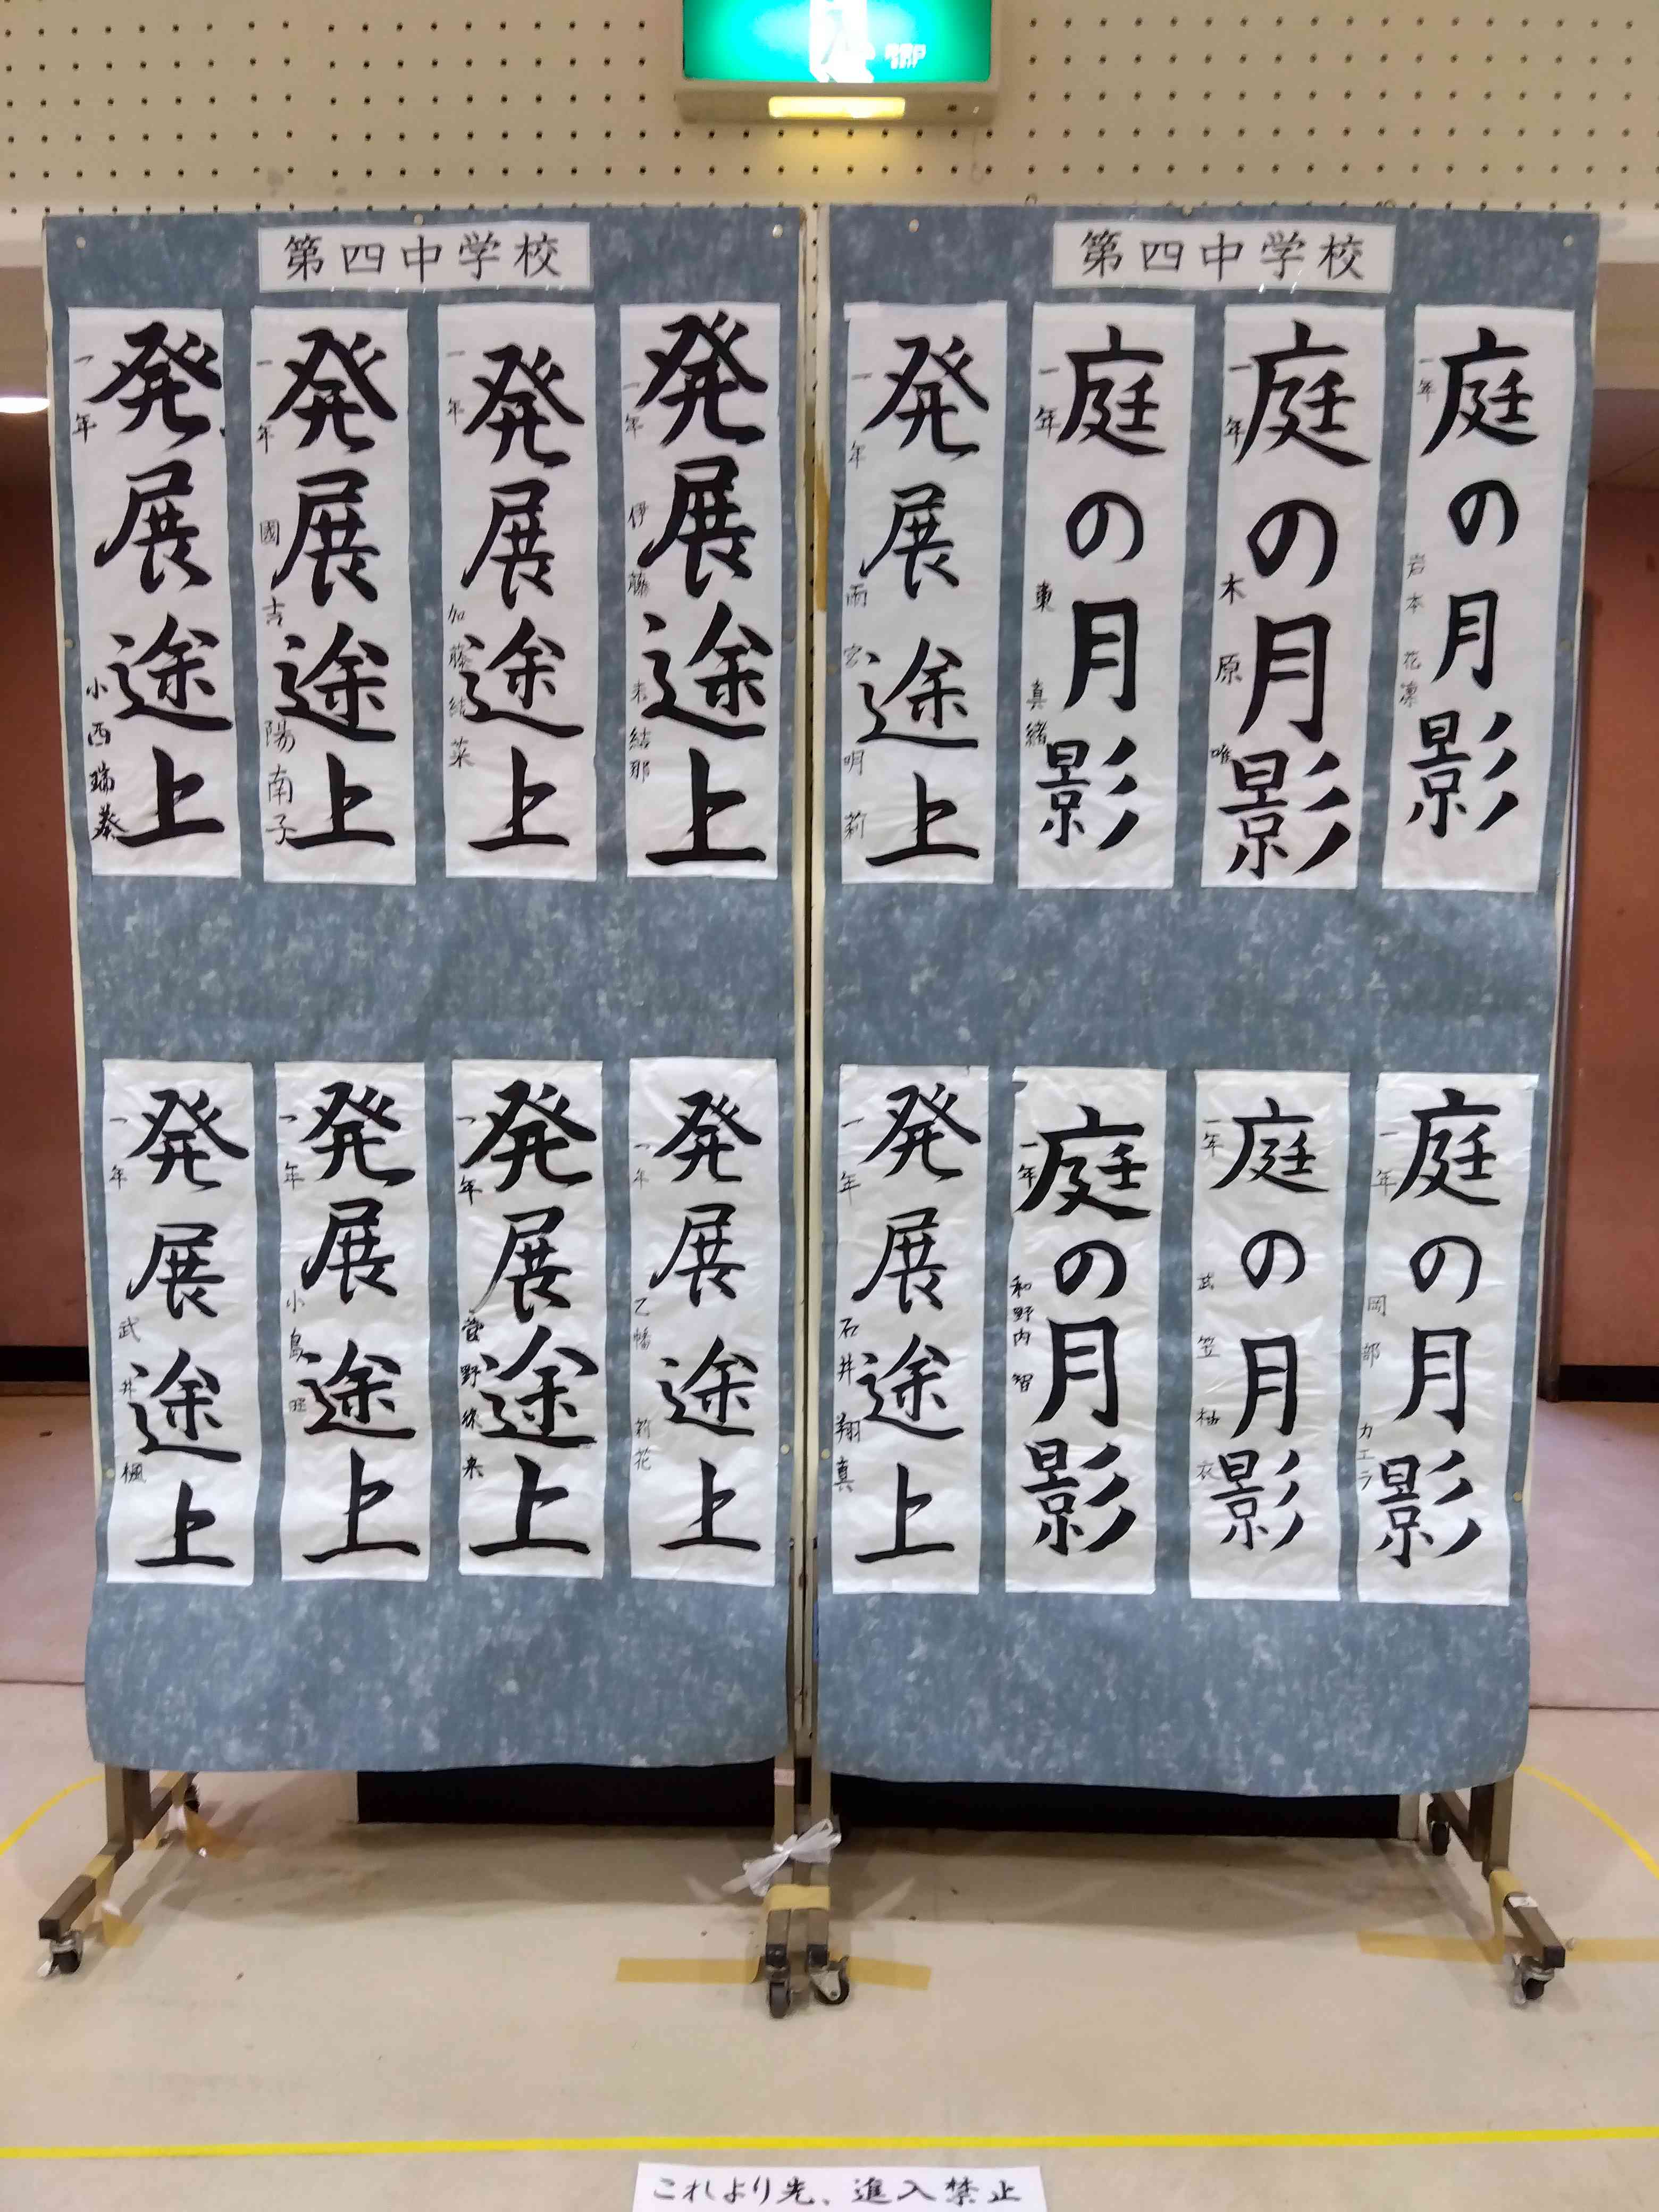 第四中学校
第四中学校
庭の月影
一年 岩本 花凛
庭の月影
一年 木原 唯
庭の月影
一年 東 真緒
発展途上
一年 雨宮 明莉
発展途上
一年 伊藤 結那
発展途上
一年 加藤 結菜
発展途上
一年 國吉 陽南子
発展途上
一年 小西 瑞葵
庭の月影
一年 岡部 カエラ
庭の月影
一年 武笠 柚衣
庭の月影
一年 和野内 智
発展途上
一年 石井 翔真
発展途上
一年 乙幡 莉花
発展途上
一年 菅野 来
発展途上
一年 小島
発展途上
一年 武井 楓
これより先、進入禁止